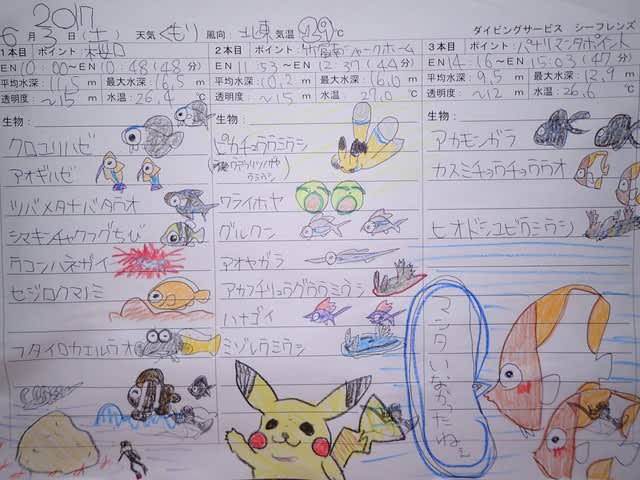 2017
6月3日(土) 天気 くもり 風向 北東 気温 29℃ ダイビングサービス シーフレンズ
1本目 ポイント:桜口
EN 10:00～EN 10:48(48分)
平均水深:11.5m 最大水深:16.5m
透明度:～15m 水温:26.4℃
生物:
クロユリハゼ
アオギハゼ
ツバメタナバタウオ
シマキンチャクフグちび
ウコンハネガイ
セジロクマノミ
フタイロカエルウオ
2本目 ポイント:竹富南シャークホーム
EN 11:53～EN 12:37(44分)
平均水深:10.2m 最大水深:16.0m
透明度:～15m 水温:27.0℃
生物:
ピカチュウウミウシ
ワライホヤ
グルクン
アオヤガラ
アカフチリュウグウウミウシ
ハナゴイ
ミゾレウミウシ
3本目 ポイント:パナリマンタポイント
EN 14:16～EN 15:03(47分)
平均水深:9.5m 最大水深:12.9m
透明度:～12m 水温:26.6℃
生物:
アカモンガラ
カスミチョウチョウウオ
ヒオドシユビウミウシ
マンタいなかったねぇ